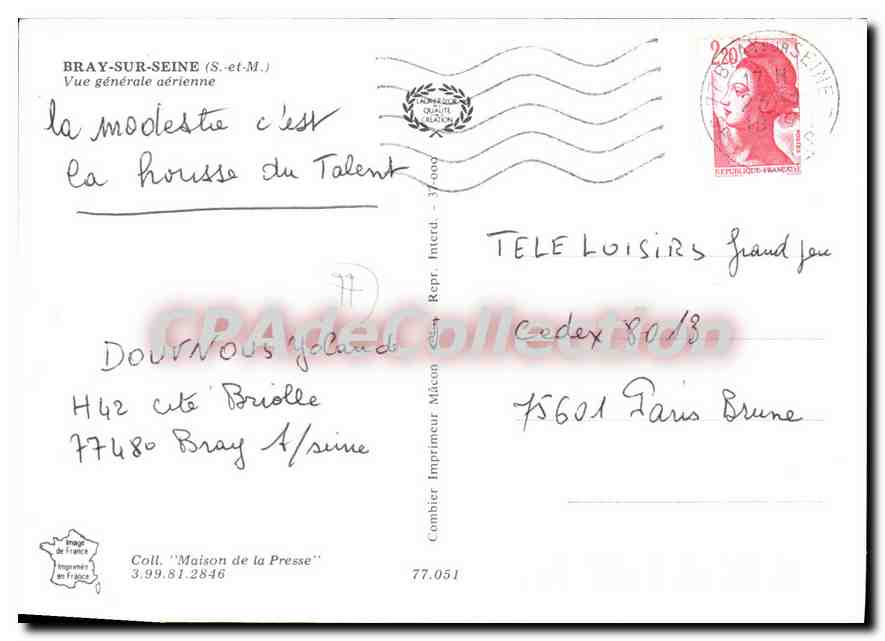 BRAY-SUR-SEINE (S.-et-M.)
Vue générale aérienne
la modestie c'est
la housse du Talent
77
DOUVNOUS Yolande
H42 cité Briolle
77480 Bray s/seine
Image
de France
Imprimée
en France
Coll. "Maison de la Presse"
3.99.81.2846
77.051
Combier Imprimeur Mâcon Repr. Interd. - 37-000
QUALITÉ
CRÉATION
2,20
POSTES
REPUBLIQUE-FRANÇAISE
BRAY SUR SEINE
17 H
TELE LOISIRS grand jeu
cedex 8013
75601 Paris Brune
CPAdeCollection